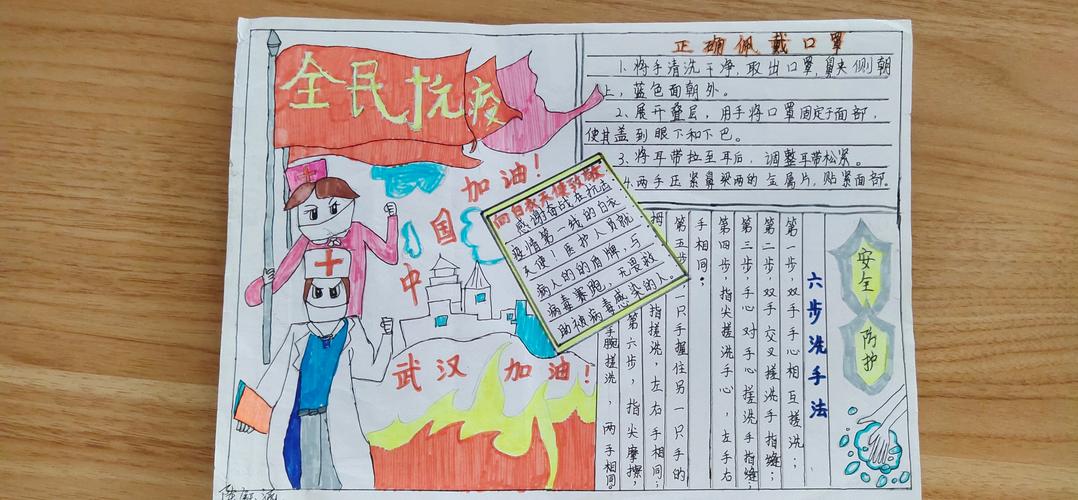 全民抗疫
中国加油!
武汉加油!
正确佩戴口罩
1、将手清洗干净,取出口罩,鼻夹侧朝
上,蓝色面朝外。
2、展开叠层,用手将口罩固定于面部,
使其盖到眼下和下巴。
3、将耳带拉至耳后,调整耳带松紧。
4、两手压紧鼻梁两的金属片,贴紧面部。
向白衣天使致敬:
感谢奋战在抗击
疫情第一线的白衣
天使!医护人员就
病人的的盾牌,与
病毒赛跑,无畏救
助被病毒感染的人。
安全
防护
六步洗手法
第一步,双手手心相互搓洗;
第二步,双手交叉搓洗手指缝;
第三步,手心对手心搓洗手指缝;
第四步,指尖搓洗手心,左手右
手相同;
第五步,一只手握住另一只手的
拇指搓洗,左右手相同;
第六步,指尖摩擦,
手腕搓洗,两手相同。